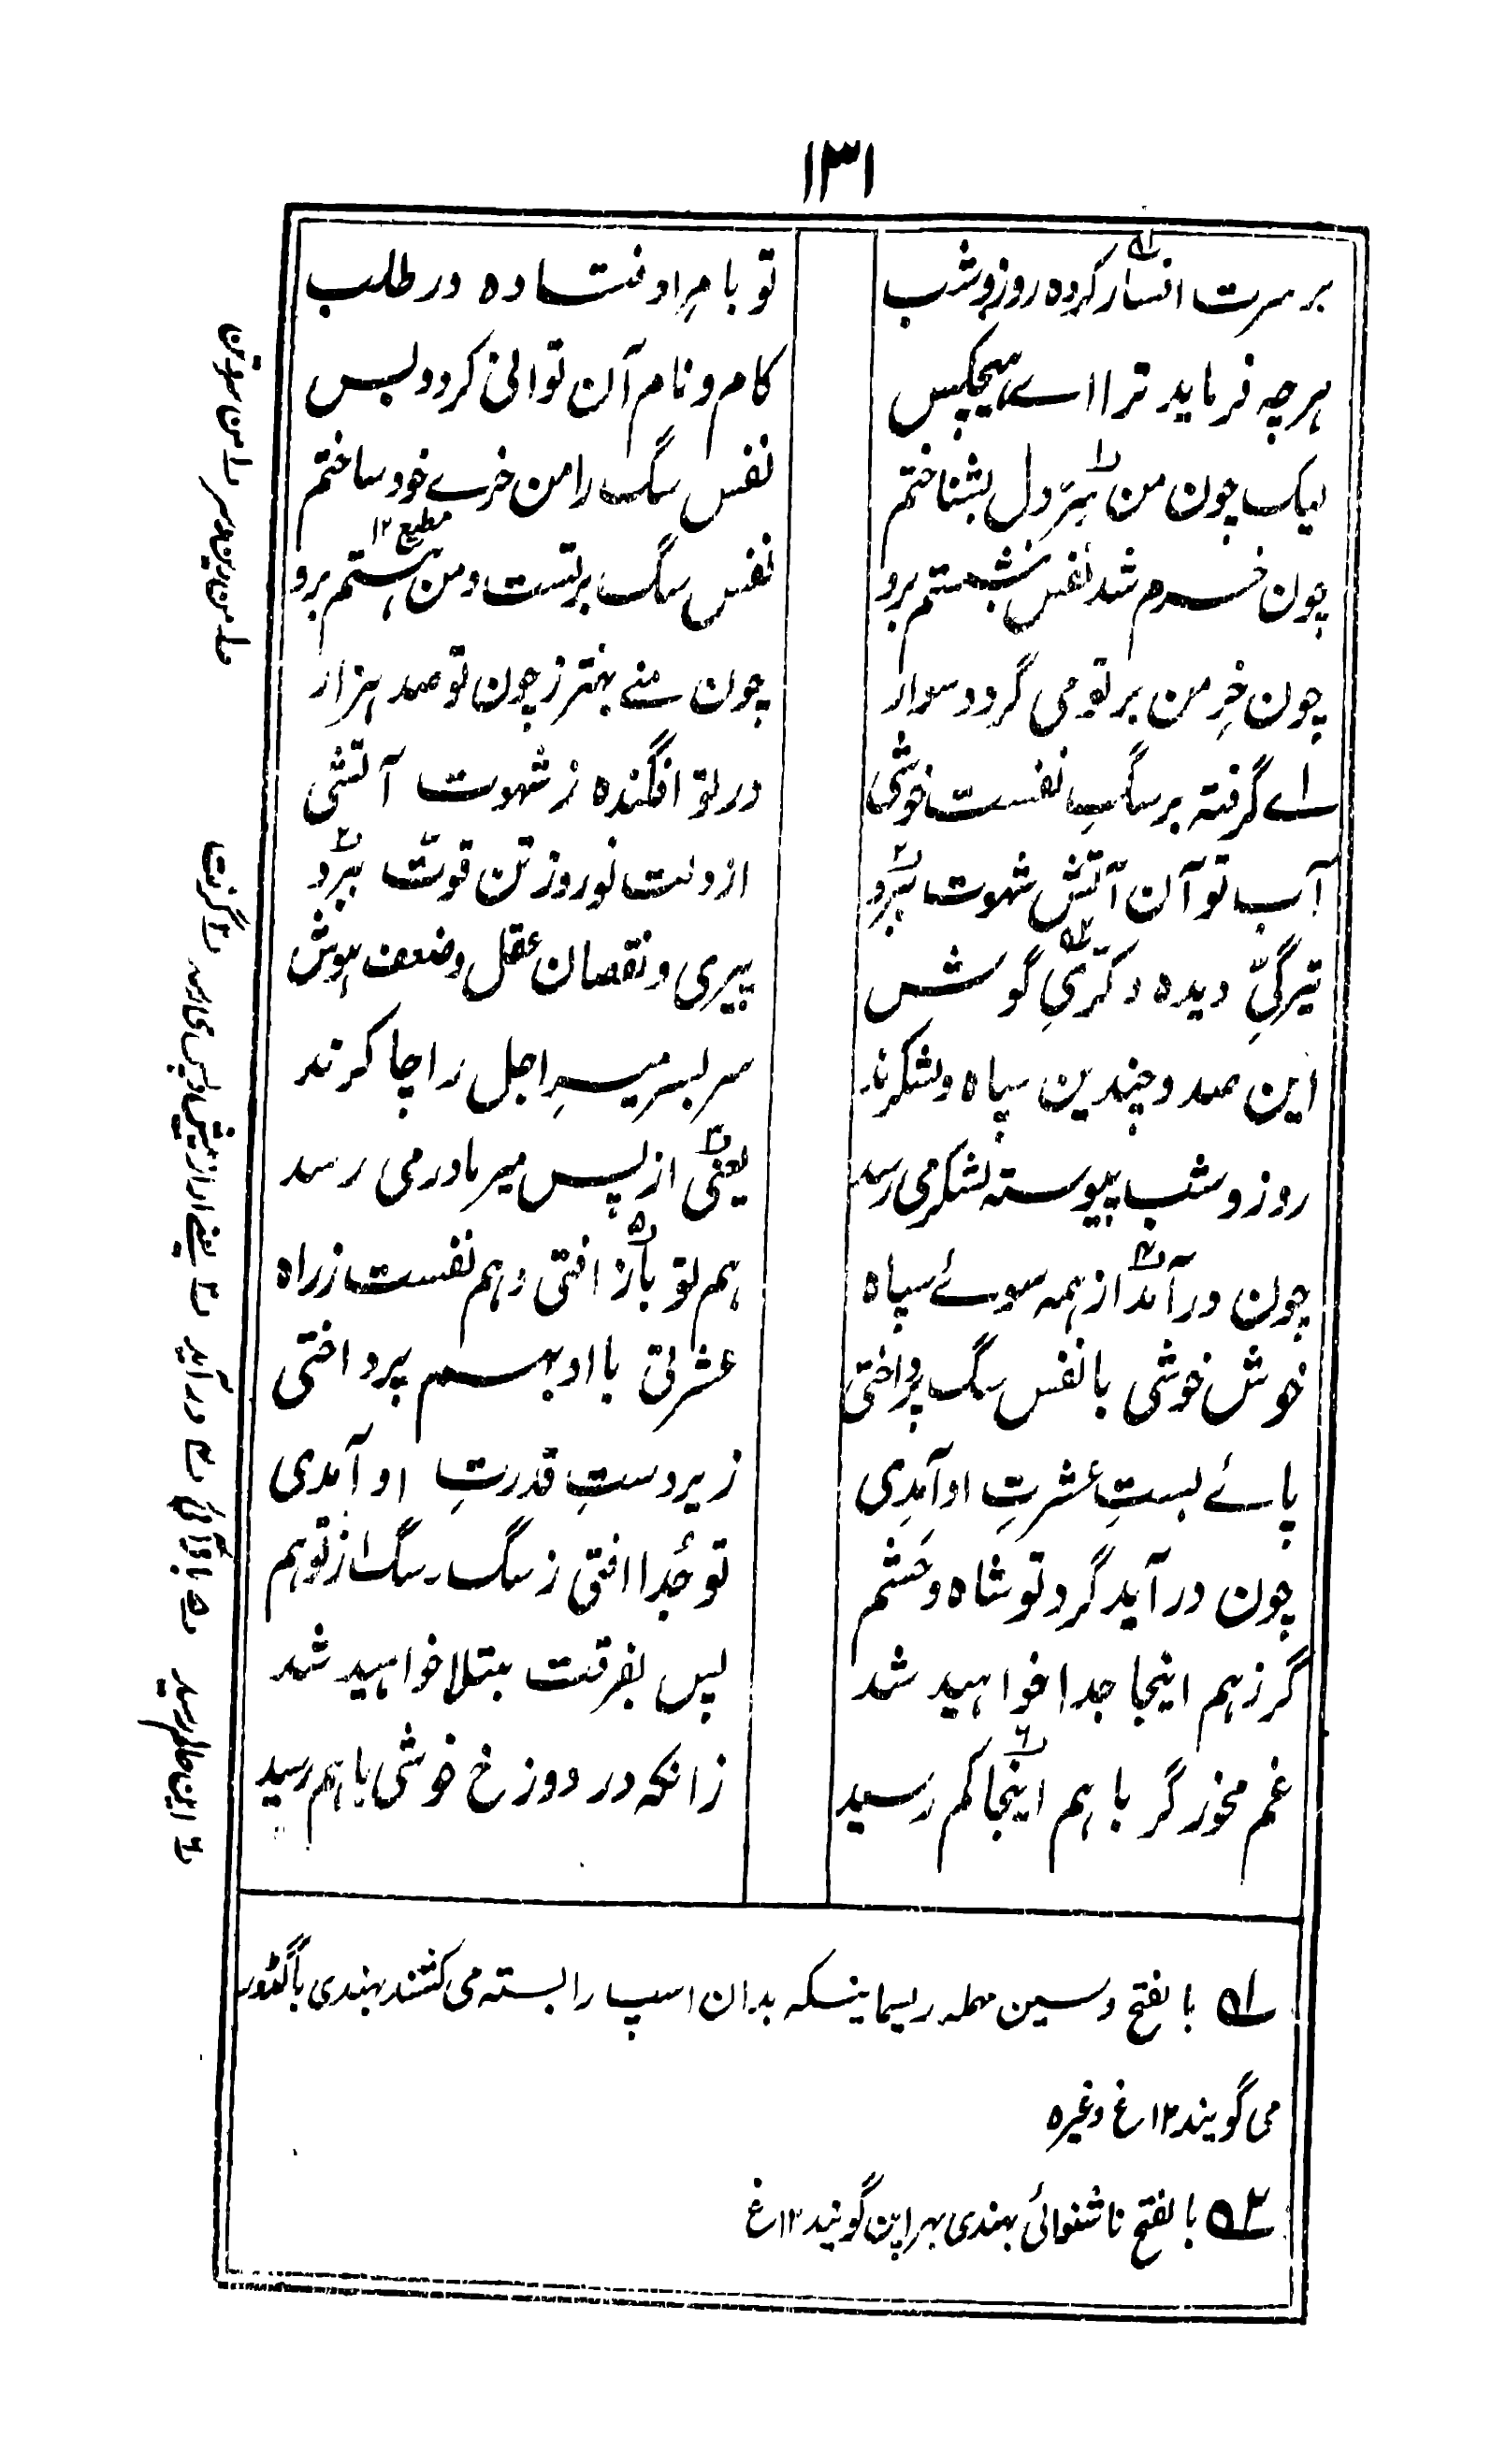 ۱۳۱
بر سرت افسار کرده روز و شب تو بامرِ او فتاده در طلب
هرچه فرماید ترا اے هیچکس کام و نام آن توانی کرد و بس
لیک چون من سِرّ دل بشناختم نفس سگ را من خرے خود ساختم
چون خرم شد نفس بنشستم برو نفس سگ بر تست و من هستم برو
مطیع ۱۲
چون خرِ من بر تو می گردد سوار چون منے بهتر ز چون تو صد هزار
اے گرفته بر سگِ نفست خوشی در تو افگنده ز شهوت آتشی
آب تو آن آتش شهوت ببرد از دلت نور و ز تن قوت ببرد
تیرگیِّ دیده و کرّیِ گوش پیری و نقصان عقل و ضعف هوش
این صد و چندین سپاه و لشکرند سر بسر میرِ اجل را چاکرند
روز و شب پیوسته لشکر می رسد یعنی از پس میر ما در می رسد
چون در آمد از همه سوئے سپاه هم تو باز افتی و هم نفست ز راه
خوش خوشی با نفس سگ پرداختی عشرتی با او بهم پرداختی
پائے بستِ عشرتِ او آمدی زیر دستِ قدرتِ او آمدی
چون در آید گرد تو شاه و حشم تو جُدا افتی ز سگ سگ از تو هم
گر ز هم اینجا جدا خواهید شد پس بفرقت مبتلا خواهید شد
غم مخور گر با هم اینجا کم رسید زانکه در دوزخ خوشی با هم رسید
۱ه بالفتح و سین مهمله ریسمانیکه بدان اسپ را بسته می کشند بهندی باگڈور
می گویند ۱۲ غ وغیره
۲ه بالفتح ناشنوائی بهندی بهراپن گویند ۱۲ غ